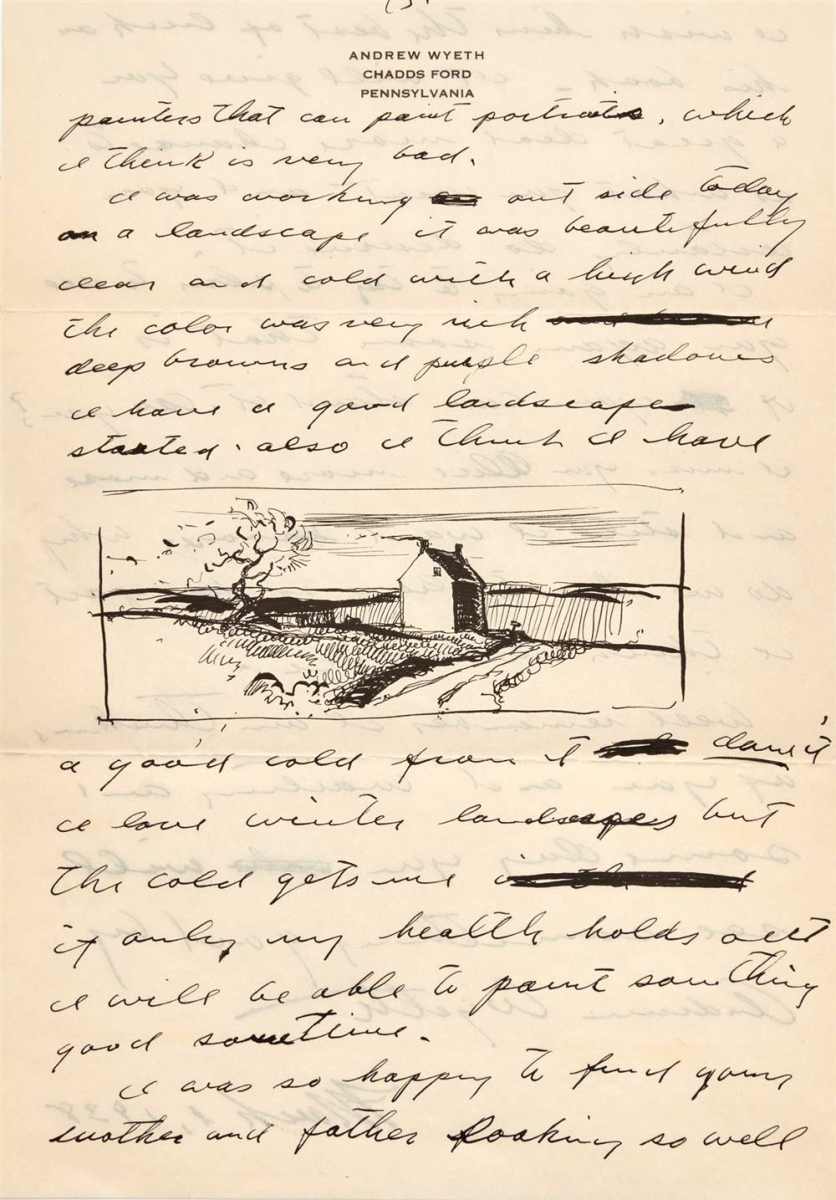 (3)
ANDREW WYETH
CHADDS FORD
PENNSYLVANIA
painters that can paint portraits, which
I think is very bad.
I was working out side today
on a landscape it was beautifully
clear and cold with a high wind
the color was very rich
deep browns and purple shadows
I have a good landscape
started. also I think I have
a good cold from it dam it
I love winter landscapes but
the cold gets me
if only my health holds out
I will be able to paint something
good sometime.
I was so happy to find your
mother and father looking so well